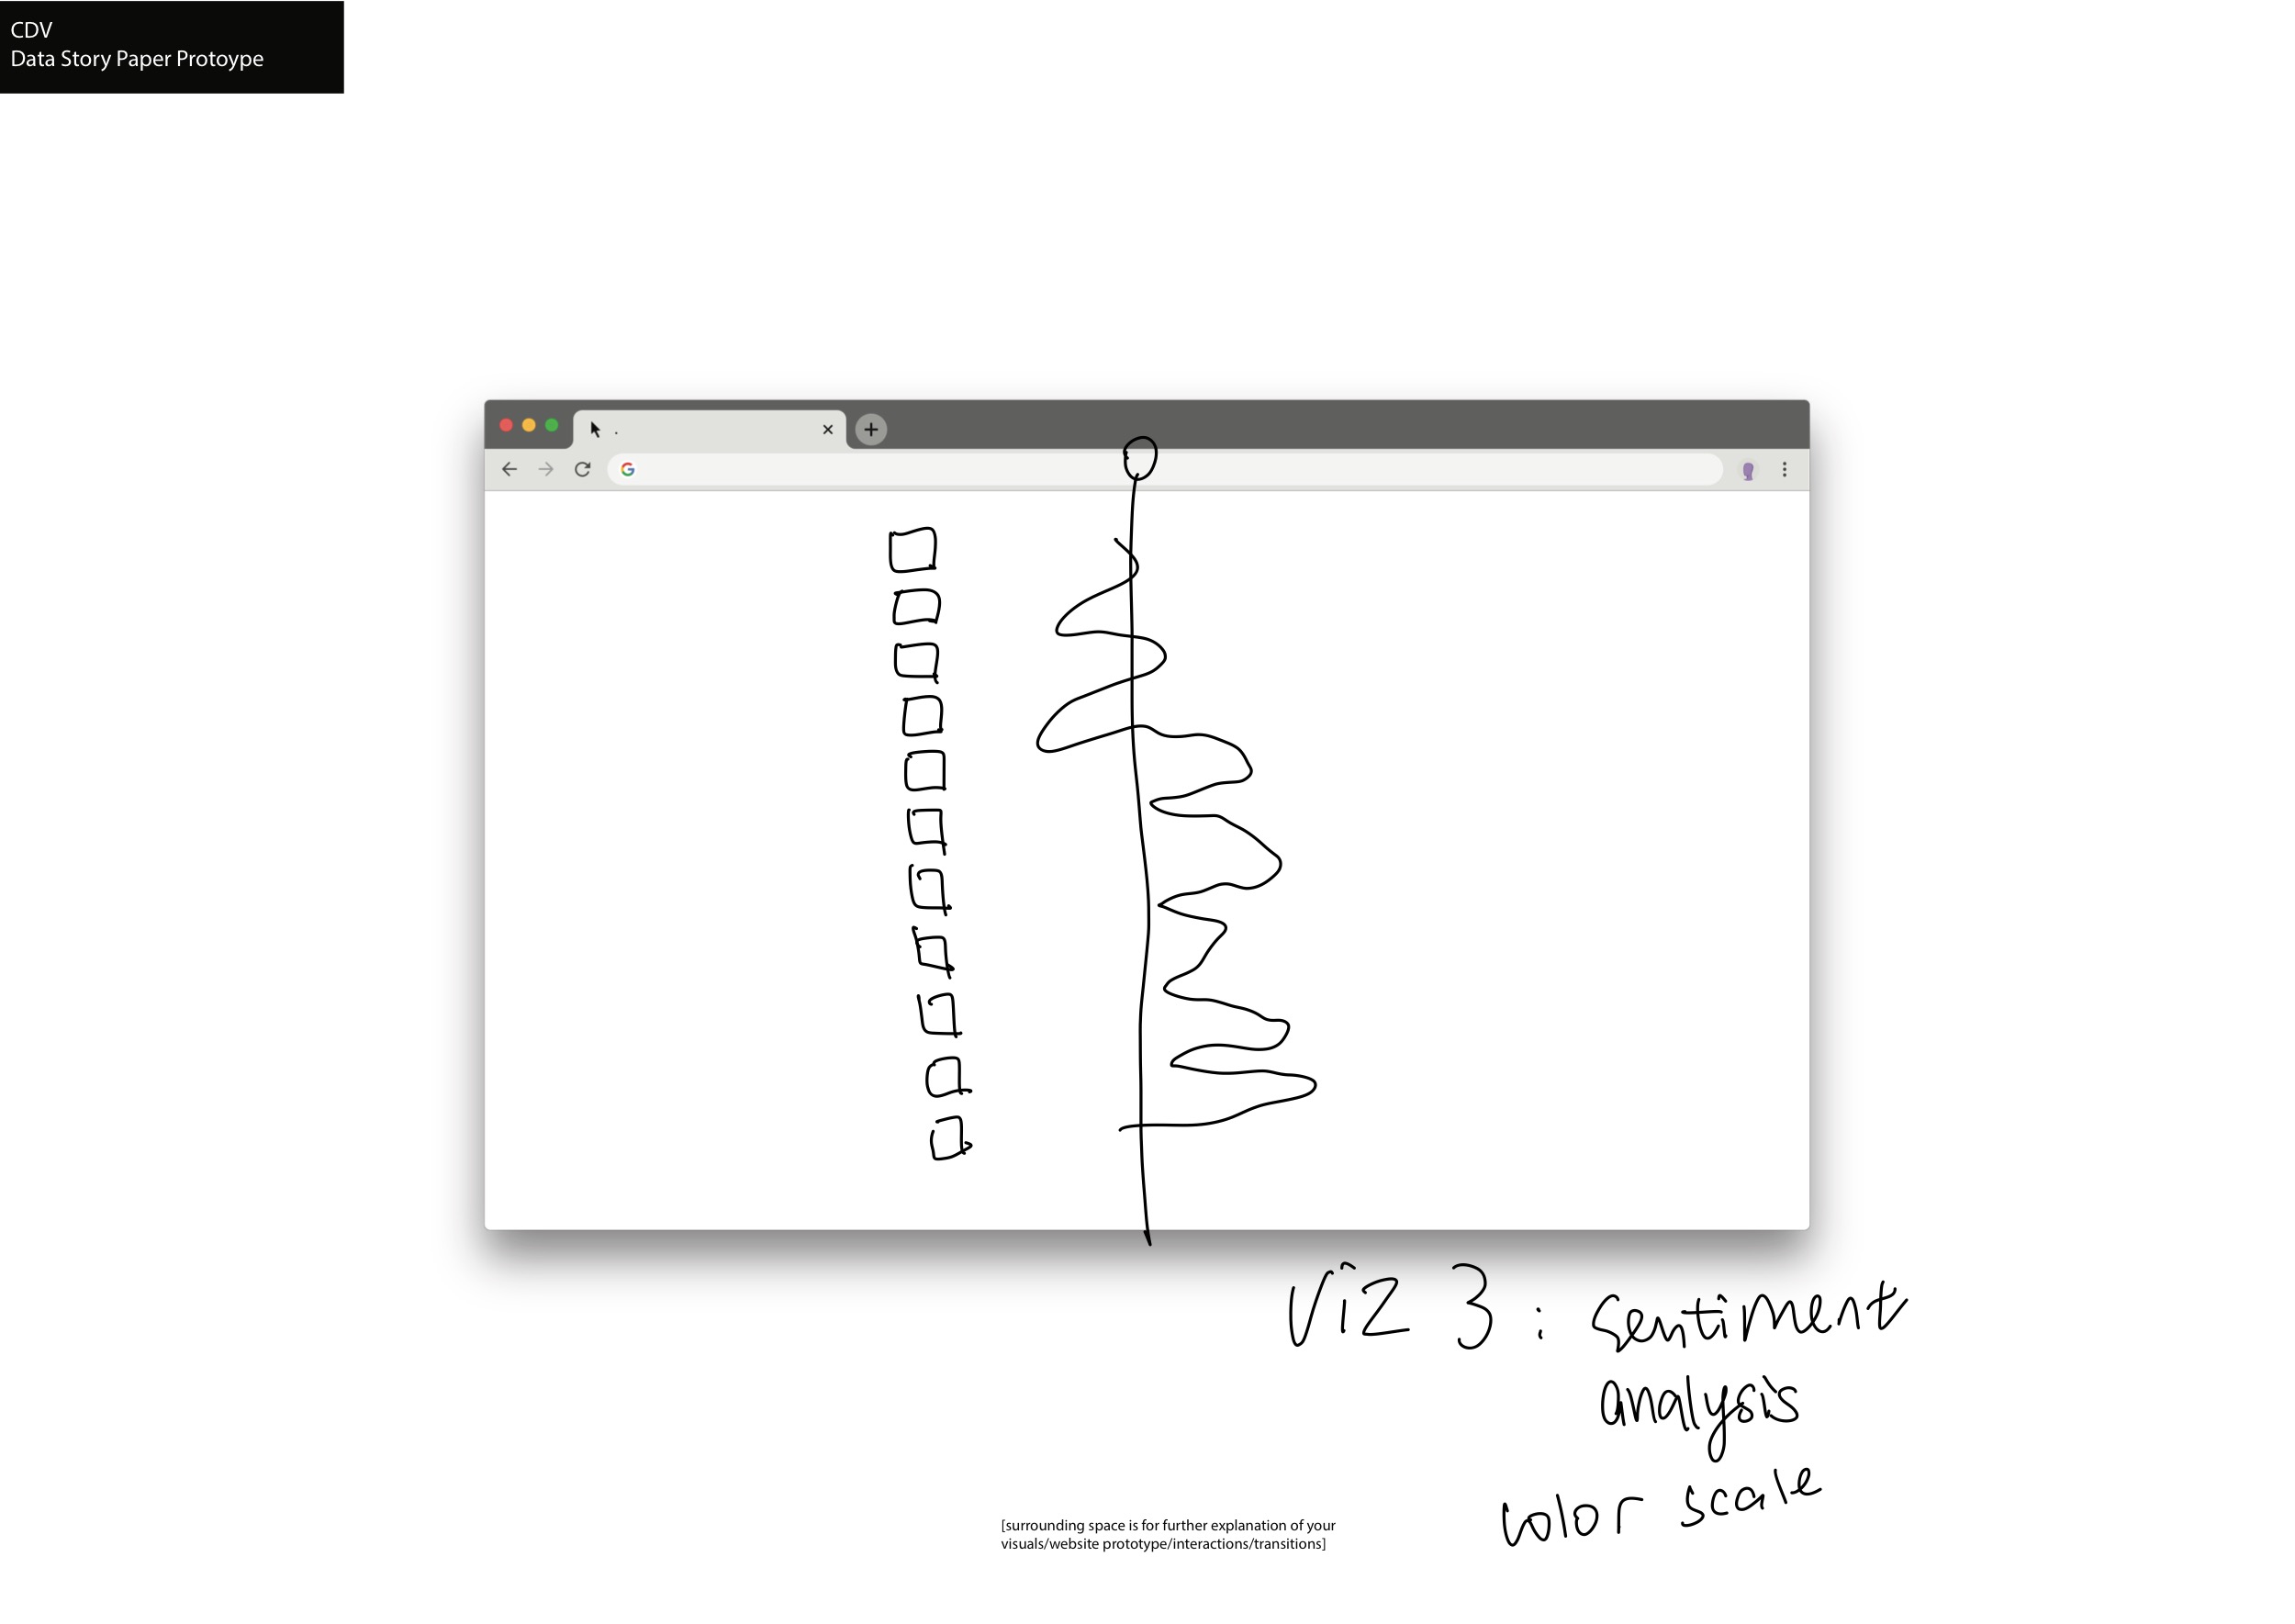 CDV
Data Story Paper Protoype
Viz 3 : sentiment
analysis
color scale
[surrounding space is for further explanation of your
visuals/website prototype/interactions/transitions]